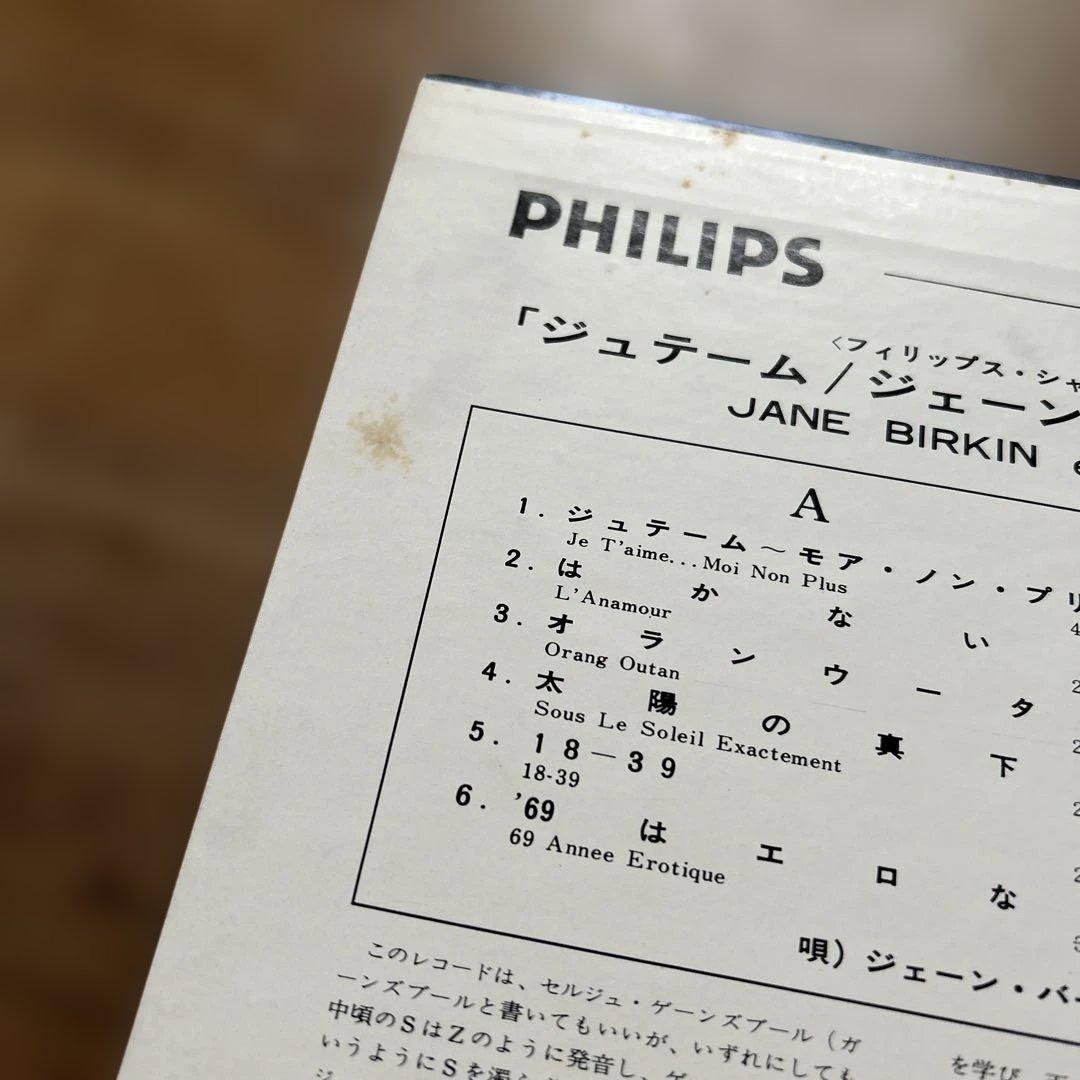 PHILIPS
<フィリップス・シャ
「ジュテーム/ジェーン
JANE BIRKIN e
A
1. ジュテーム～モア・ノン・プリ
Je T'aime...Moi Non Plus
2. はかない
L'Anamour
3. オランウータ
Orang Outan
4. 太陽の真下
Sous Le Soleil Exactement
5. 18—39
18-39
6. '69はエロな
69 Annee Erotique
唄) ジェーン・バー
このレコードは、セルジュ・ゲーンズブール (ガ
ーンズブールと書いてもいいが、いずれにしても
中頃のSはZのように発音し、ゲ
いうようにSを濁
を学び